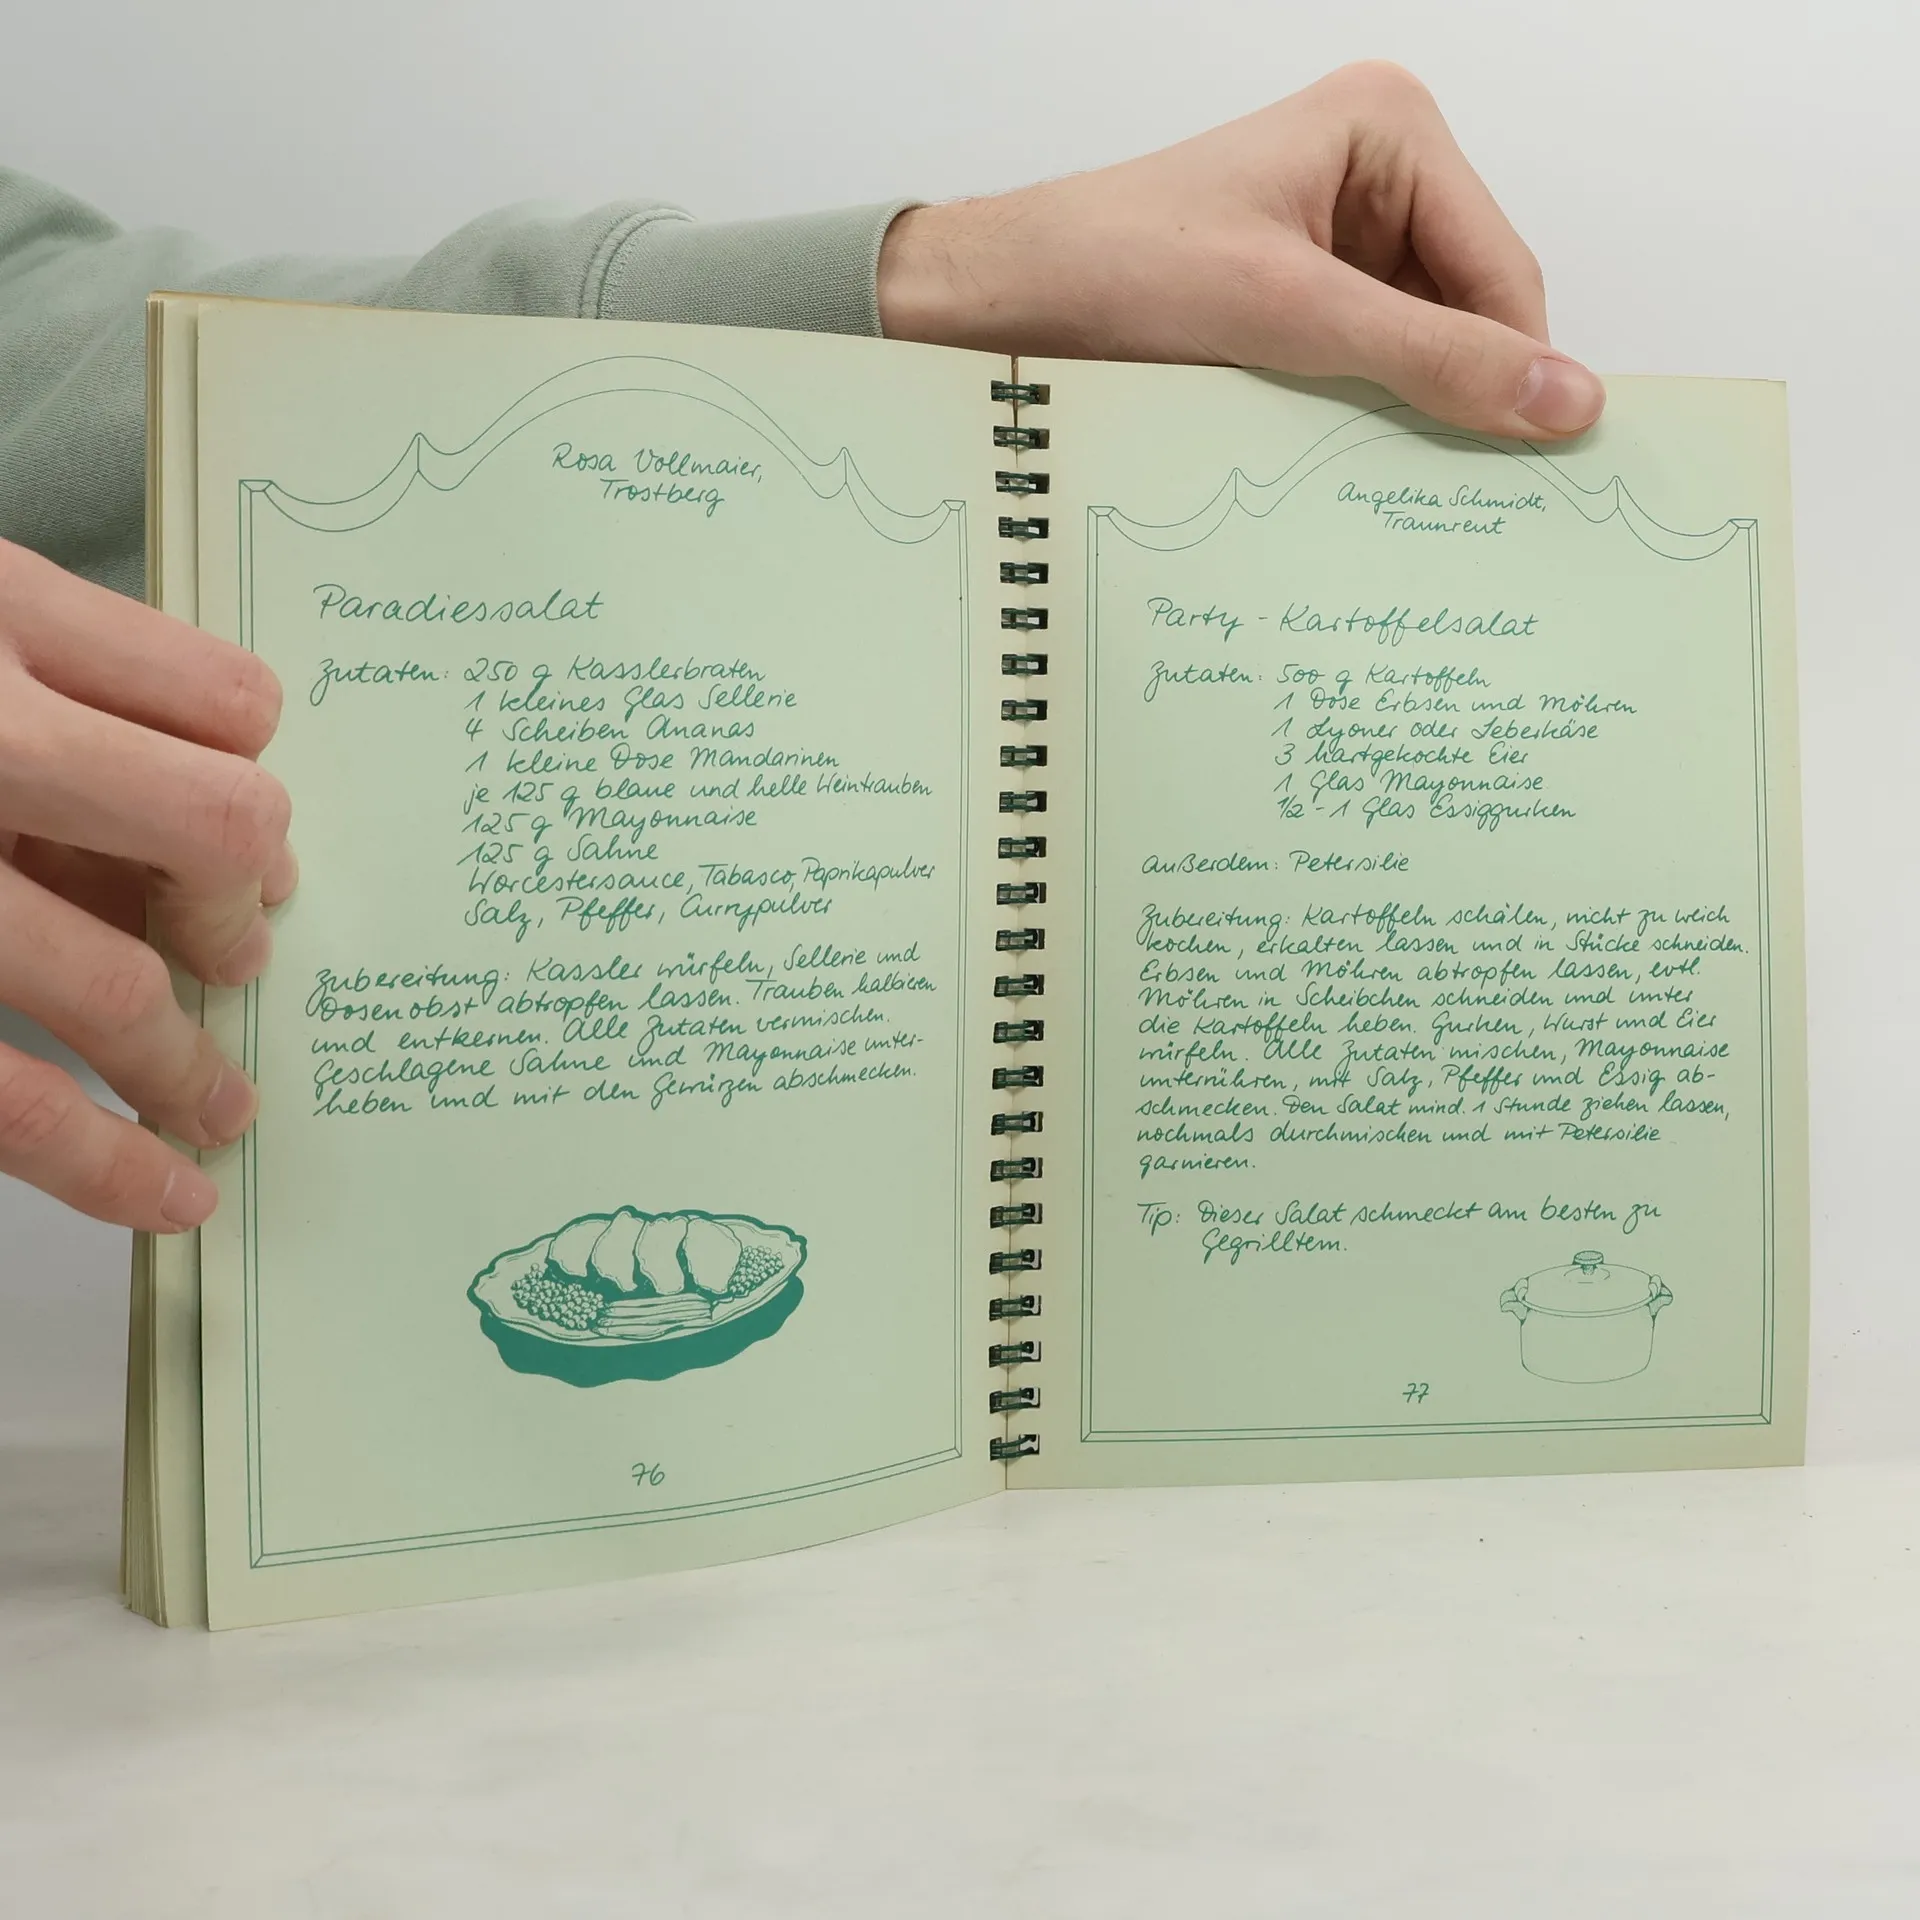 Rosa Vollmaier,
Trostberg
Paradiessalat
Zutaten: 250 g Kasslerbraten
1 kleines Glas Sellerie
4 Scheiben Ananas
1 kleine Dose Mandarinen
je 125 g blaue und helle Weintrauben
125 g Mayonnaise
125 g Sahne
Worcestersauce, Tabasco, Paprikapulver
Salz, Pfeffer, Currypulver
Zubereitung: Kassler würfeln, Sellerie und
Dosenobst abtropfen lassen. Trauben halbieren
und entkernen. Alle Zutaten vermischen.
Geschlagene Sahne und Mayonnaise unter-
heben und mit den Gewürzen abschmecken.
76
Angelika Schmidt,
Traunreut
Party - Kartoffelsalat
Zutaten: 500 g Kartoffeln
1 Dose Erbsen und Möhren
1 Lyoner oder Leberkäse
3 hartgekochte Eier
1 Glas Mayonnaise
1/2 - 1 Glas Essiggurken
außerdem: Petersilie
Zubereitung: Kartoffeln schälen, nicht zu weich
kochen, erkalten lassen und in Stücke schneiden.
Erbsen und Möhren abtropfen lassen, evtl.
Möhren in Scheibchen schneiden und unter
die Kartoffeln heben. Gurken, Wurst und Eier
würfeln. Alle Zutaten mischen, Mayonnaise
unterrühren, mit Salz, Pfeffer und Essig ab-
schmecken. Den Salat mind. 1 Stunde ziehen lassen,
nochmals durchmischen und mit Petersilie
garnieren.
Tip: Dieser Salat schmeckt am besten zu
Gegrilltem.
77